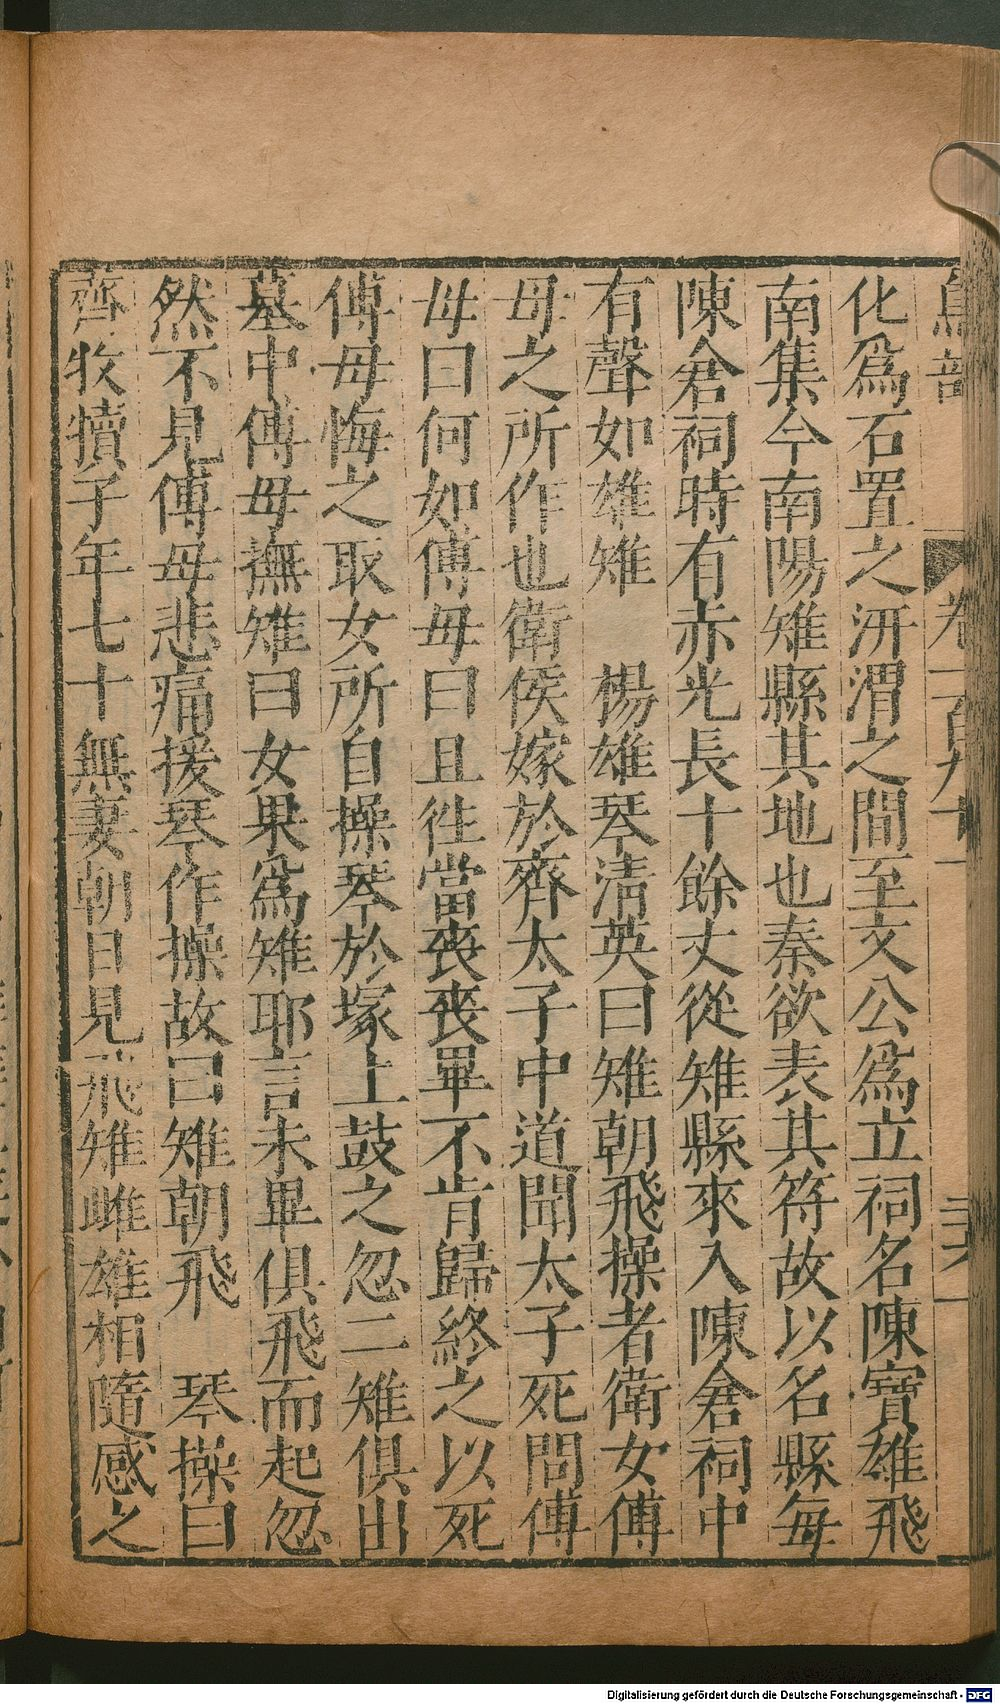 鳥部 卷一百九十一 三六
化爲石置之汧渭之間至文公爲立祠名陳寶雄飛
南集今南陽雉縣其地也秦欲表其符故以名縣每
陳倉祠時有赤光長十餘丈從雉縣來入陳倉祠中
有聲如雄雉 楊雄琴清英曰雉朝飛操者衛女傅
母之所作也衛侯嫁於齊太子中道聞太子死問傅
母曰何如傅毋曰且徃當喪喪畢不肯歸終之以死
傅毋悔之取女所自操琴於塚上鼓之忽二雉俱出
墓中傅毋撫雉曰女果爲雉耶言未畢俱飛而起忽
然不見傅毋悲痛援琴作操故曰雉朝飛 琴操曰
齊牧犢子年七十無妻朝日見飛雉雌雄相隨感之
Digitalisierung gefördert durch die Deutsche Forschungsgemeinschaft - DFG